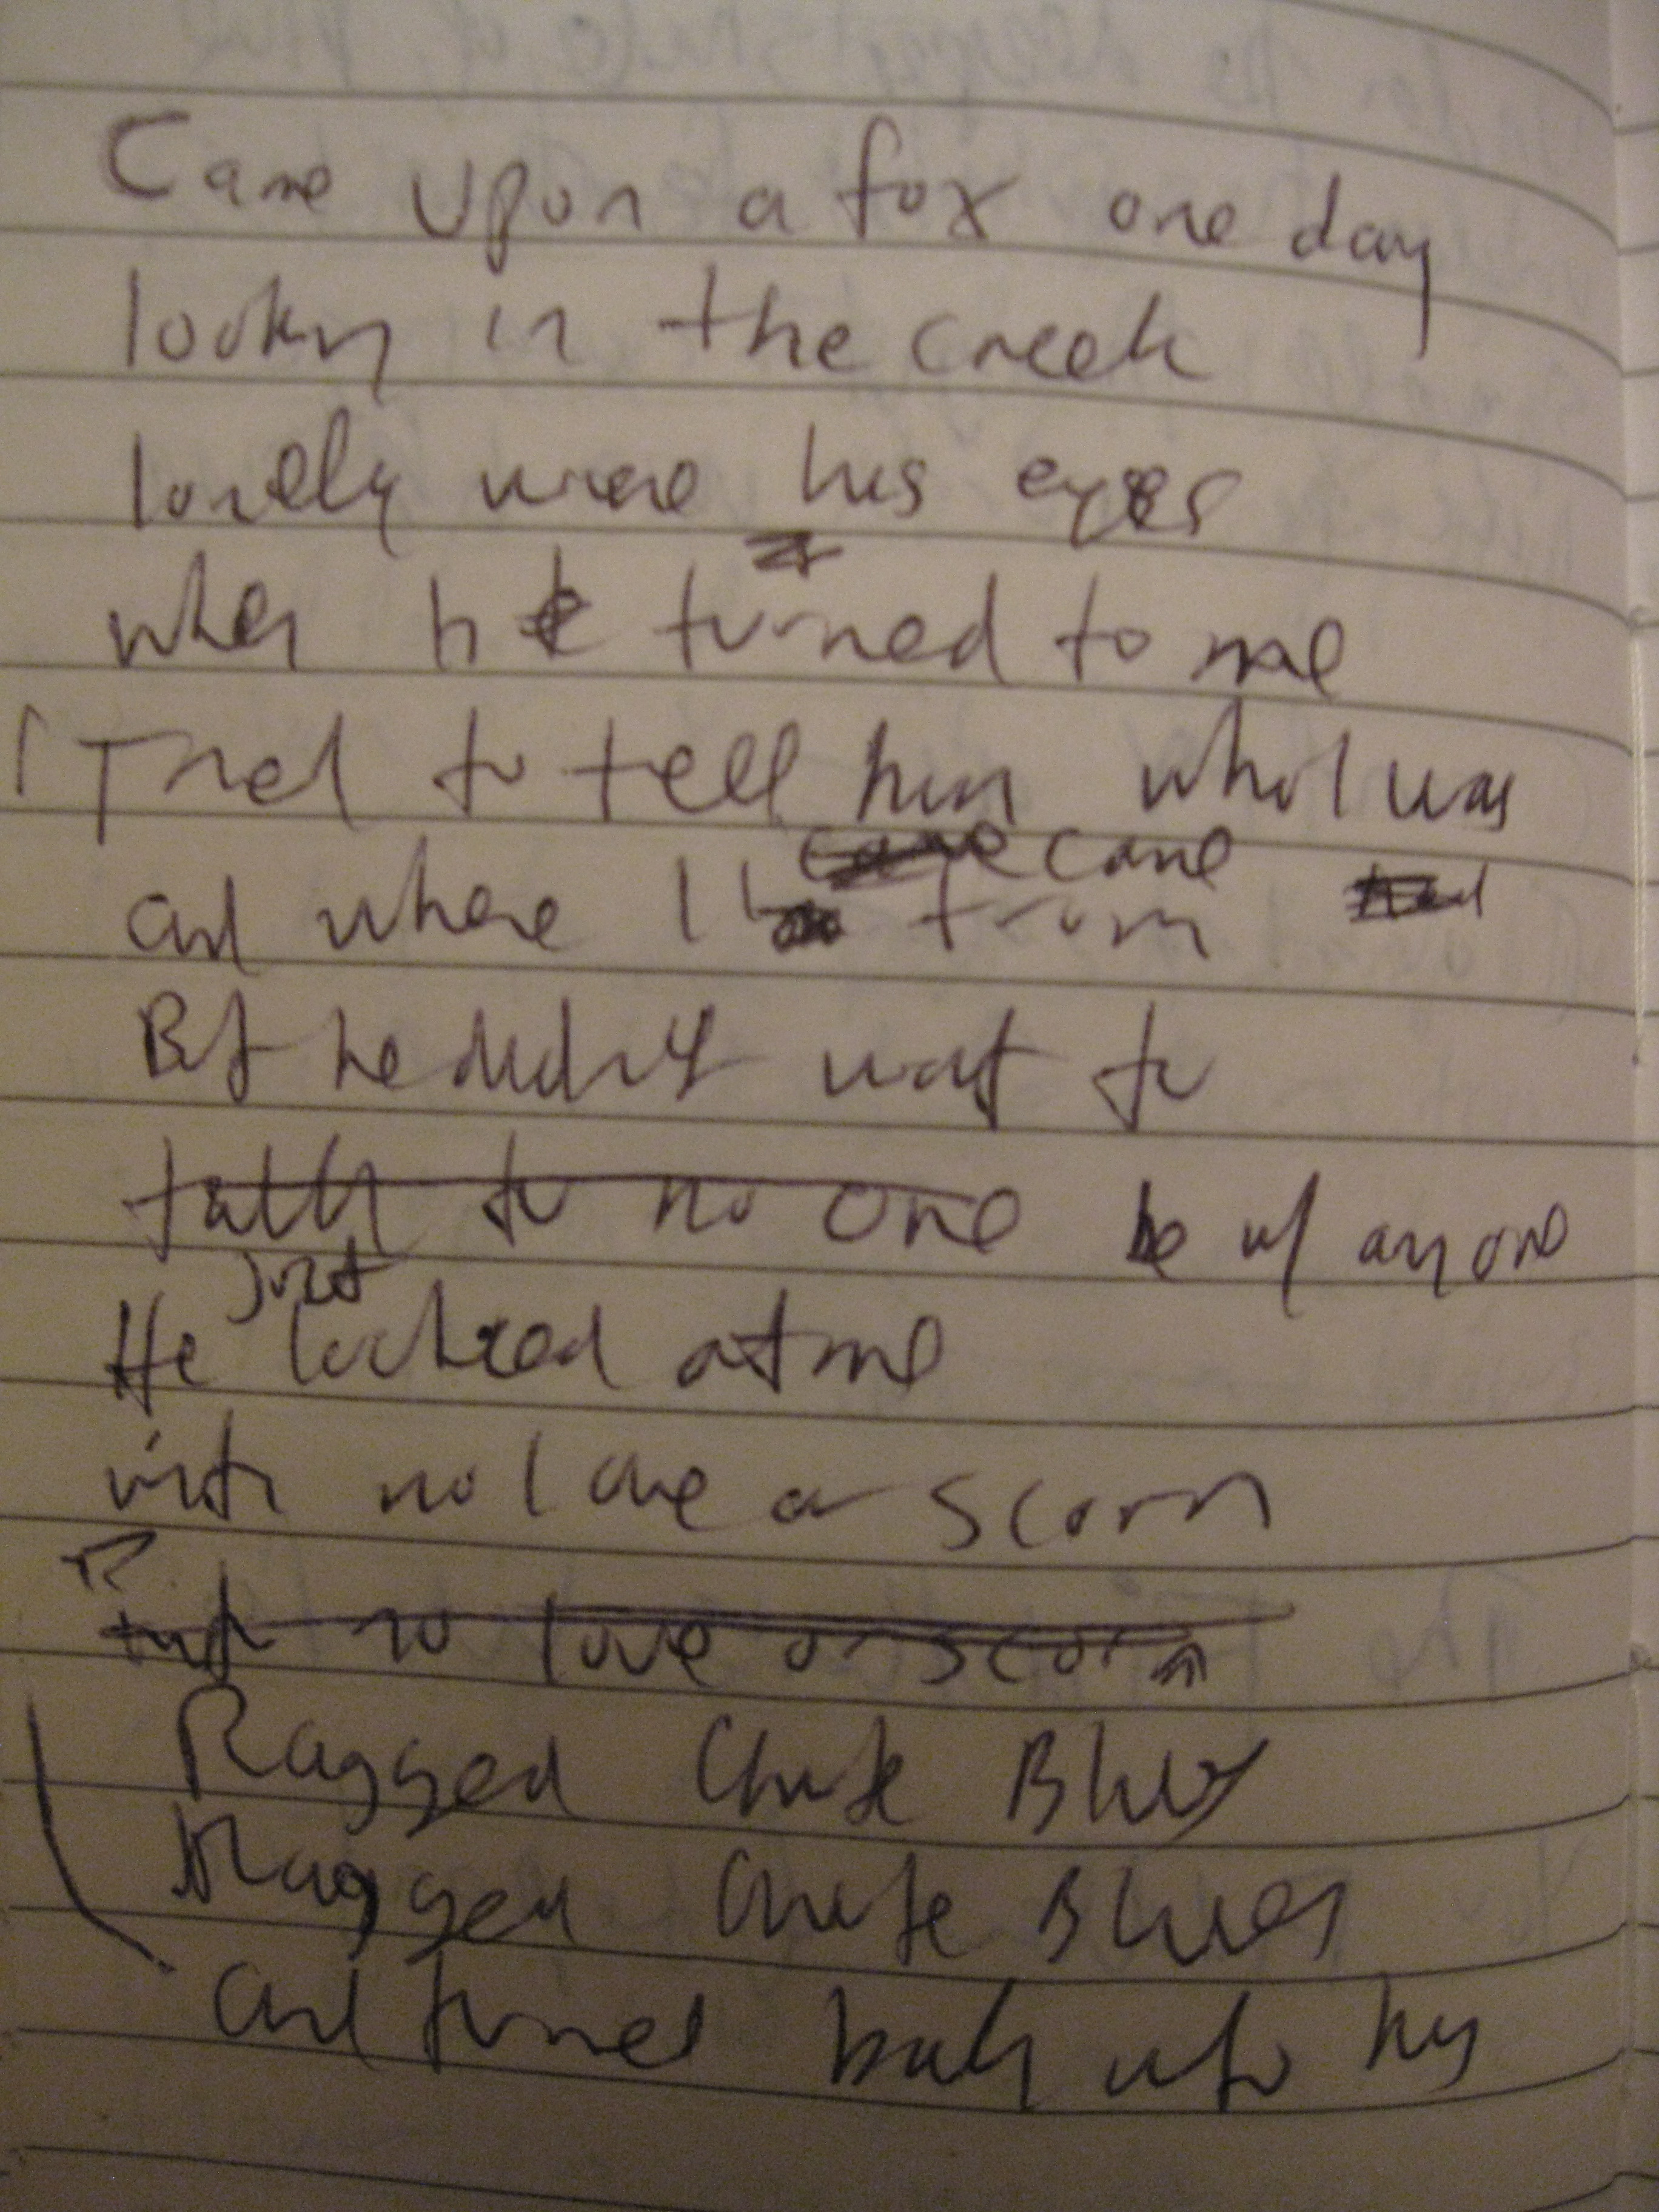 Came upon a fox one day
lookn in the creek
lonely were his eyes
when he turned to me
I Tried to tell him who I was
and where I came from
But he didn't want to
talk to no one be w/ anyone
He just looked at me
with no love or scorn
no love or scorn
Ragged Chute Blues
Ragged Chute Blues
and turned back into his